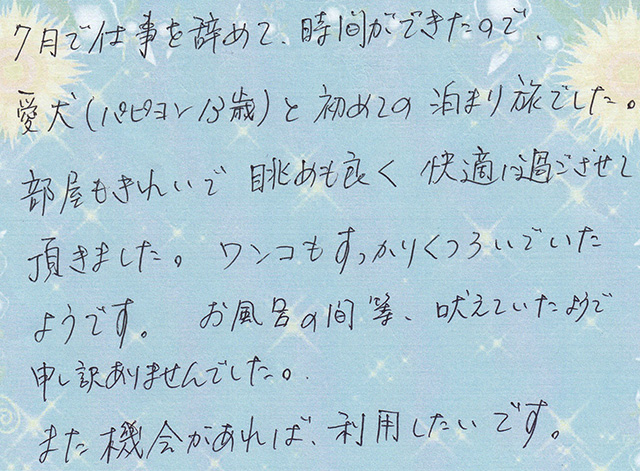 7月で仕事を辞めて、時間ができたので、
愛犬(パピヨン13歳)と初めての泊まり旅でした。
部屋もきれいで眺めも良く快適に過ごさせて
頂きました。ワンコもすっかりくつろいでいた
ようです。お風呂の間等、吠えていたようで
申し訳ありませんでした。
また機会があれば、利用したいです。